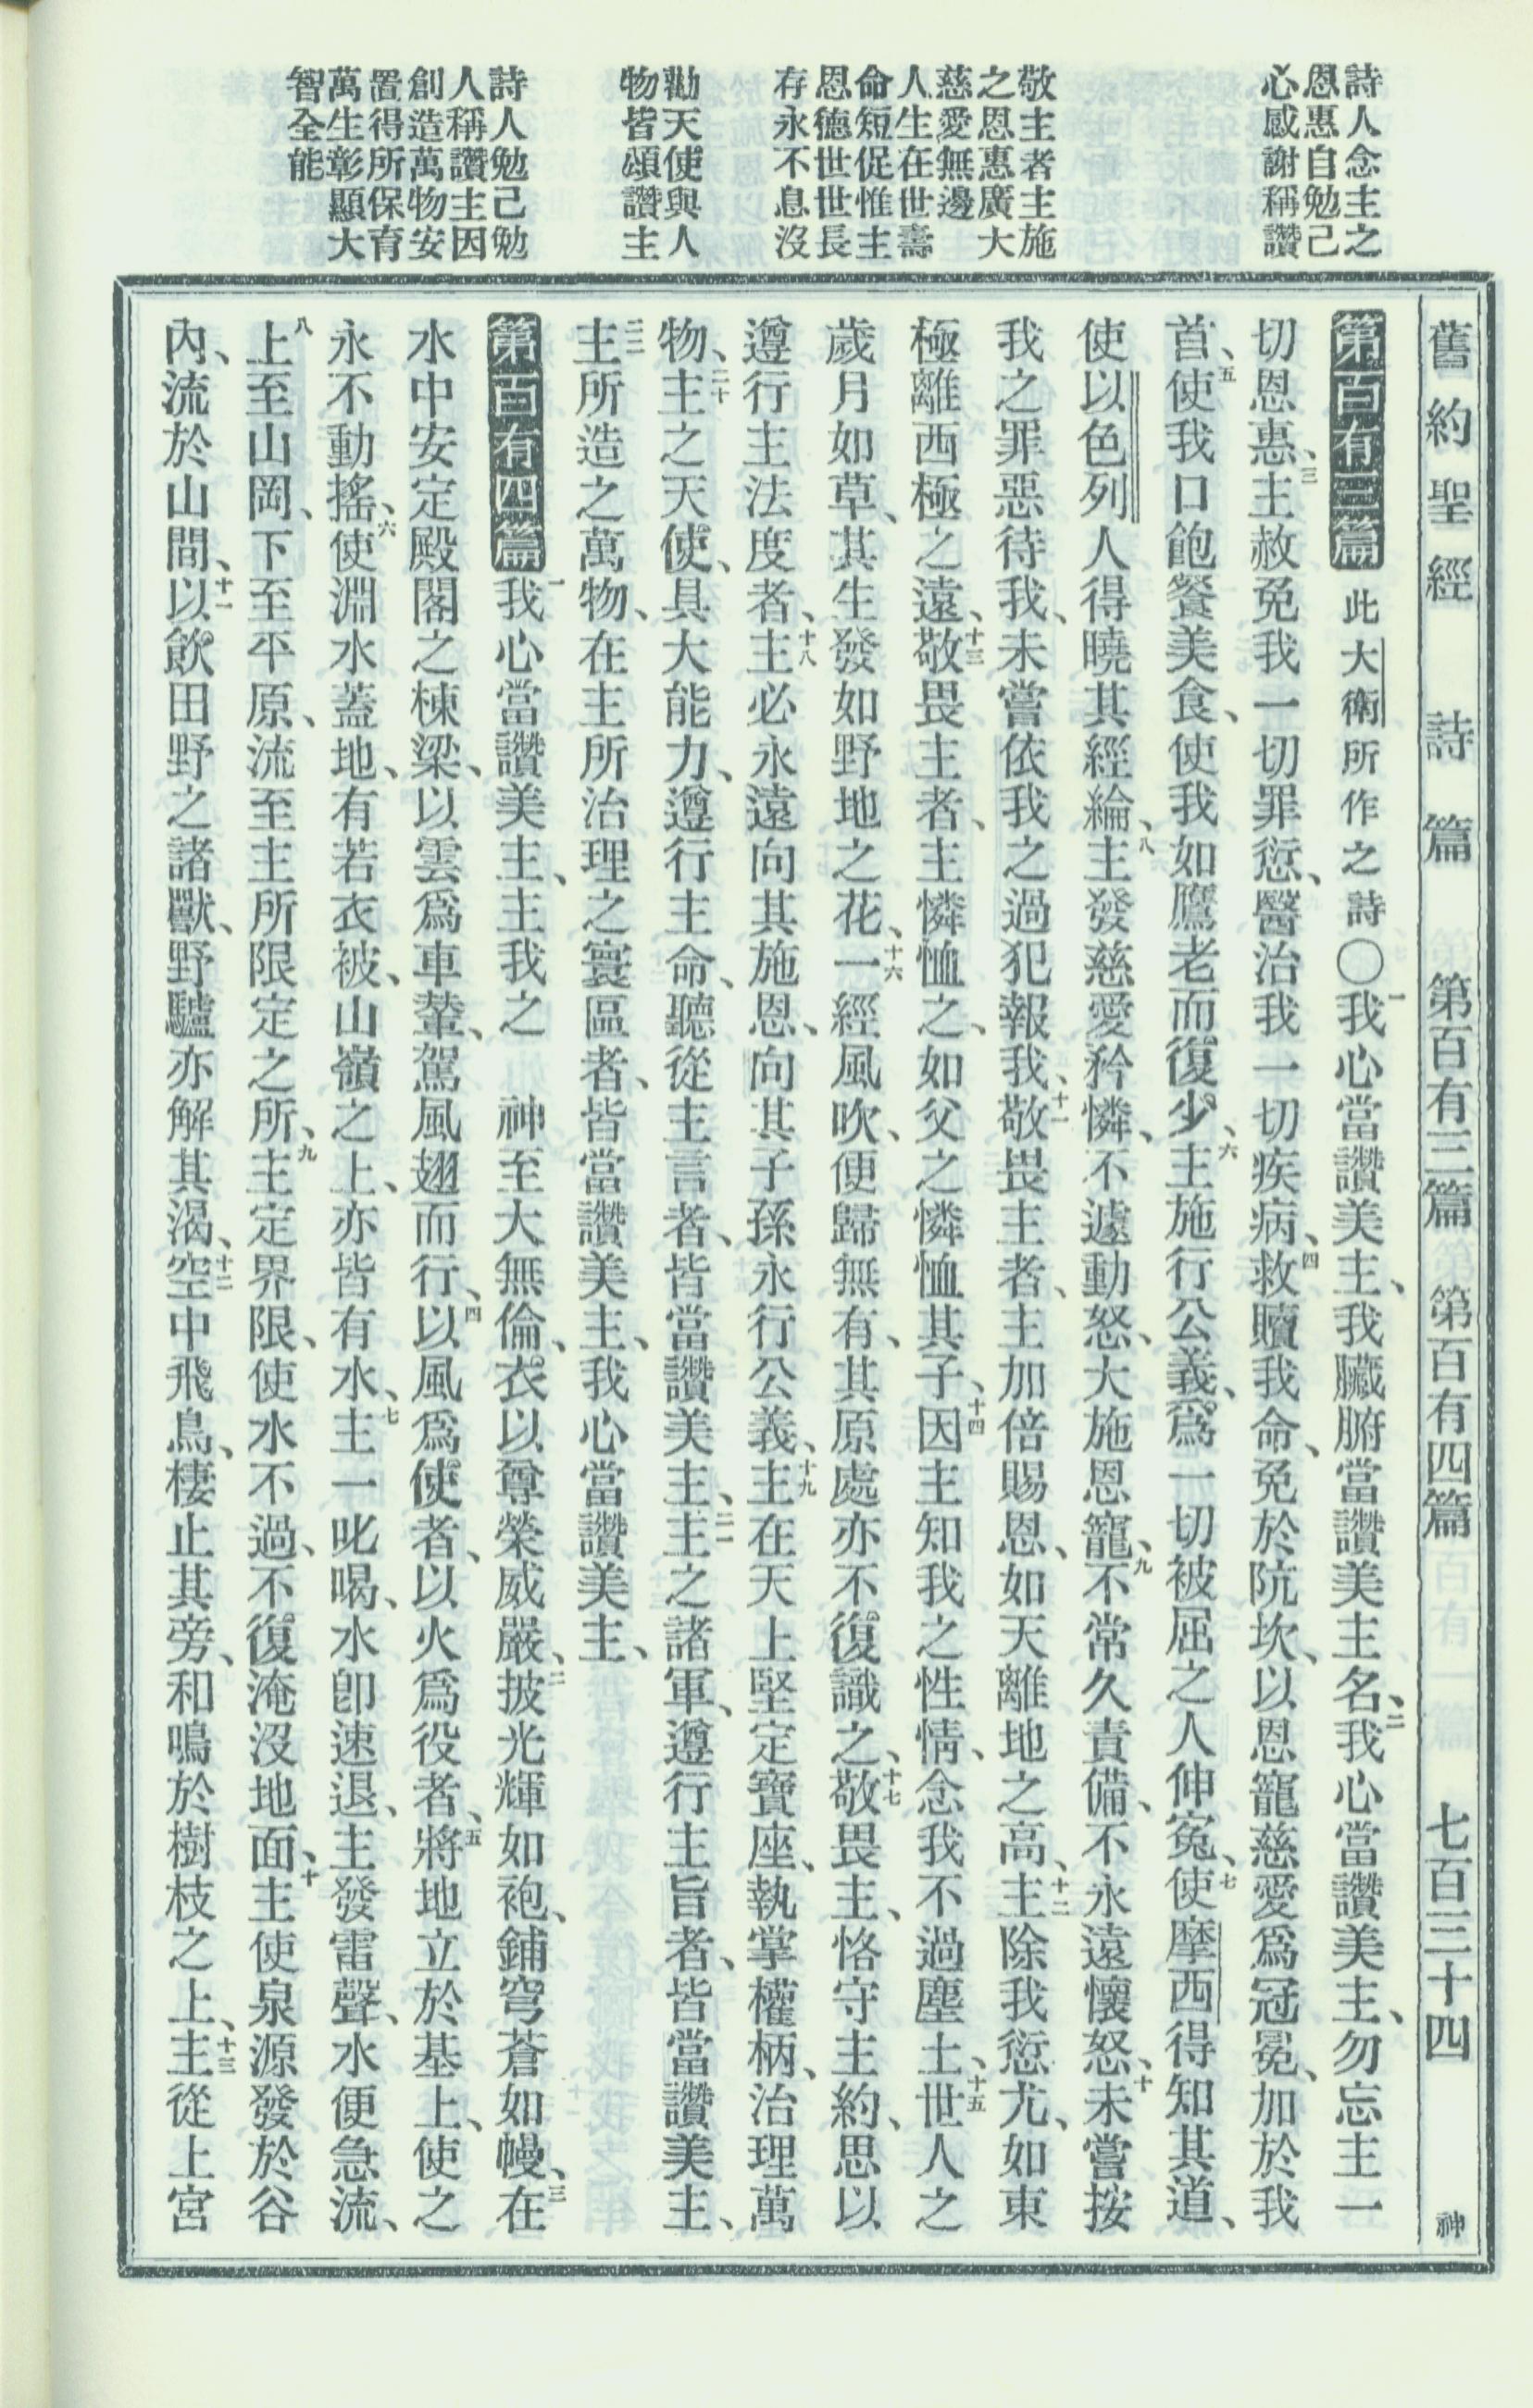 詩人念主之
恩惠自勉己
心感謝稱讚
敬主者主施
之恩惠廣大
慈愛無邊
人生在世壽
命短促惟主
恩德世世長
存永不息沒
勸天使與人
物皆頌讚主
詩人勉己勉
人稱讚主因
創造萬物安
置得所保育
萬生彰顯大
智全能
舊約聖經 詩篇 第百有三篇 第百有四篇 七百三十四 神
第百有三篇 此大衛所作之詩〇一我心當讚美主、我臟腑當讚美主名、二我心當讚美主、勿忘主一
切恩惠、三主赦免我一切罪愆、醫治我一切疾病、四救贖我命、免於阬坎、以恩寵慈愛爲冠冕、加於我
首、五使我口飽餐美食、使我如鷹老而復少、六主施行公義、爲一切被屈之人伸寃、七使摩西得知其道、
使以色列人得曉其經綸、八主發慈愛矜憐、不遽動怒、大施恩寵、九不常久責備、不永遠懷怒、十未嘗按
我之罪惡待我、未嘗依我之過犯報我、十一敬畏主者、主加倍賜恩、如天離地之高、十二主除我愆尤、如東
極離西極之遠、十三敬畏主者、主憐恤之、如父之憐恤其子、十四因主知我之性情、念我不過塵土、十五世人之
歲月如草、其生發如野地之花、十六一經風吹、便歸無有、其原處亦不復識之、十七敬畏主、恪守主約、思以
遵行主法度者、十八主必永遠向其施恩、向其子孫永行公義、十九主在天上堅定寶座、執掌權柄、治理萬
物、二十主之天使、具大能力、遵行主命、聽從主言者、皆當讚美主、二一主之諸軍、遵行主旨者、皆當讚美主、
二二主所造之萬物、在主所治理之寰區者、皆當讚美主、我心當讚美主、
第百有四篇 一我心當讚美主、主我之 神至大無倫、衣以尊榮威嚴、二披光輝如袍、鋪穹蒼如幔、三在
水中安定殿閣之棟梁、以雲爲車輦、駕風翅而行、四以風爲使者、以火爲役者、五將地立於基上、使之
永不動搖、六使淵水蓋地、有若衣被、山嶺之上、亦皆有水、七主一叱喝、水卽速退、主發雷聲、水便急流、
八上至山岡、下至平原、流至主所限定之所、九主定界限、使水不過、不復淹沒地面、十主使泉源發於谷
內、流於山間、十一以飮田野之諸獸、野驢亦解其渴、十二空中飛鳥、棲止其旁、和鳴於樹枝之上、十三主從上宮